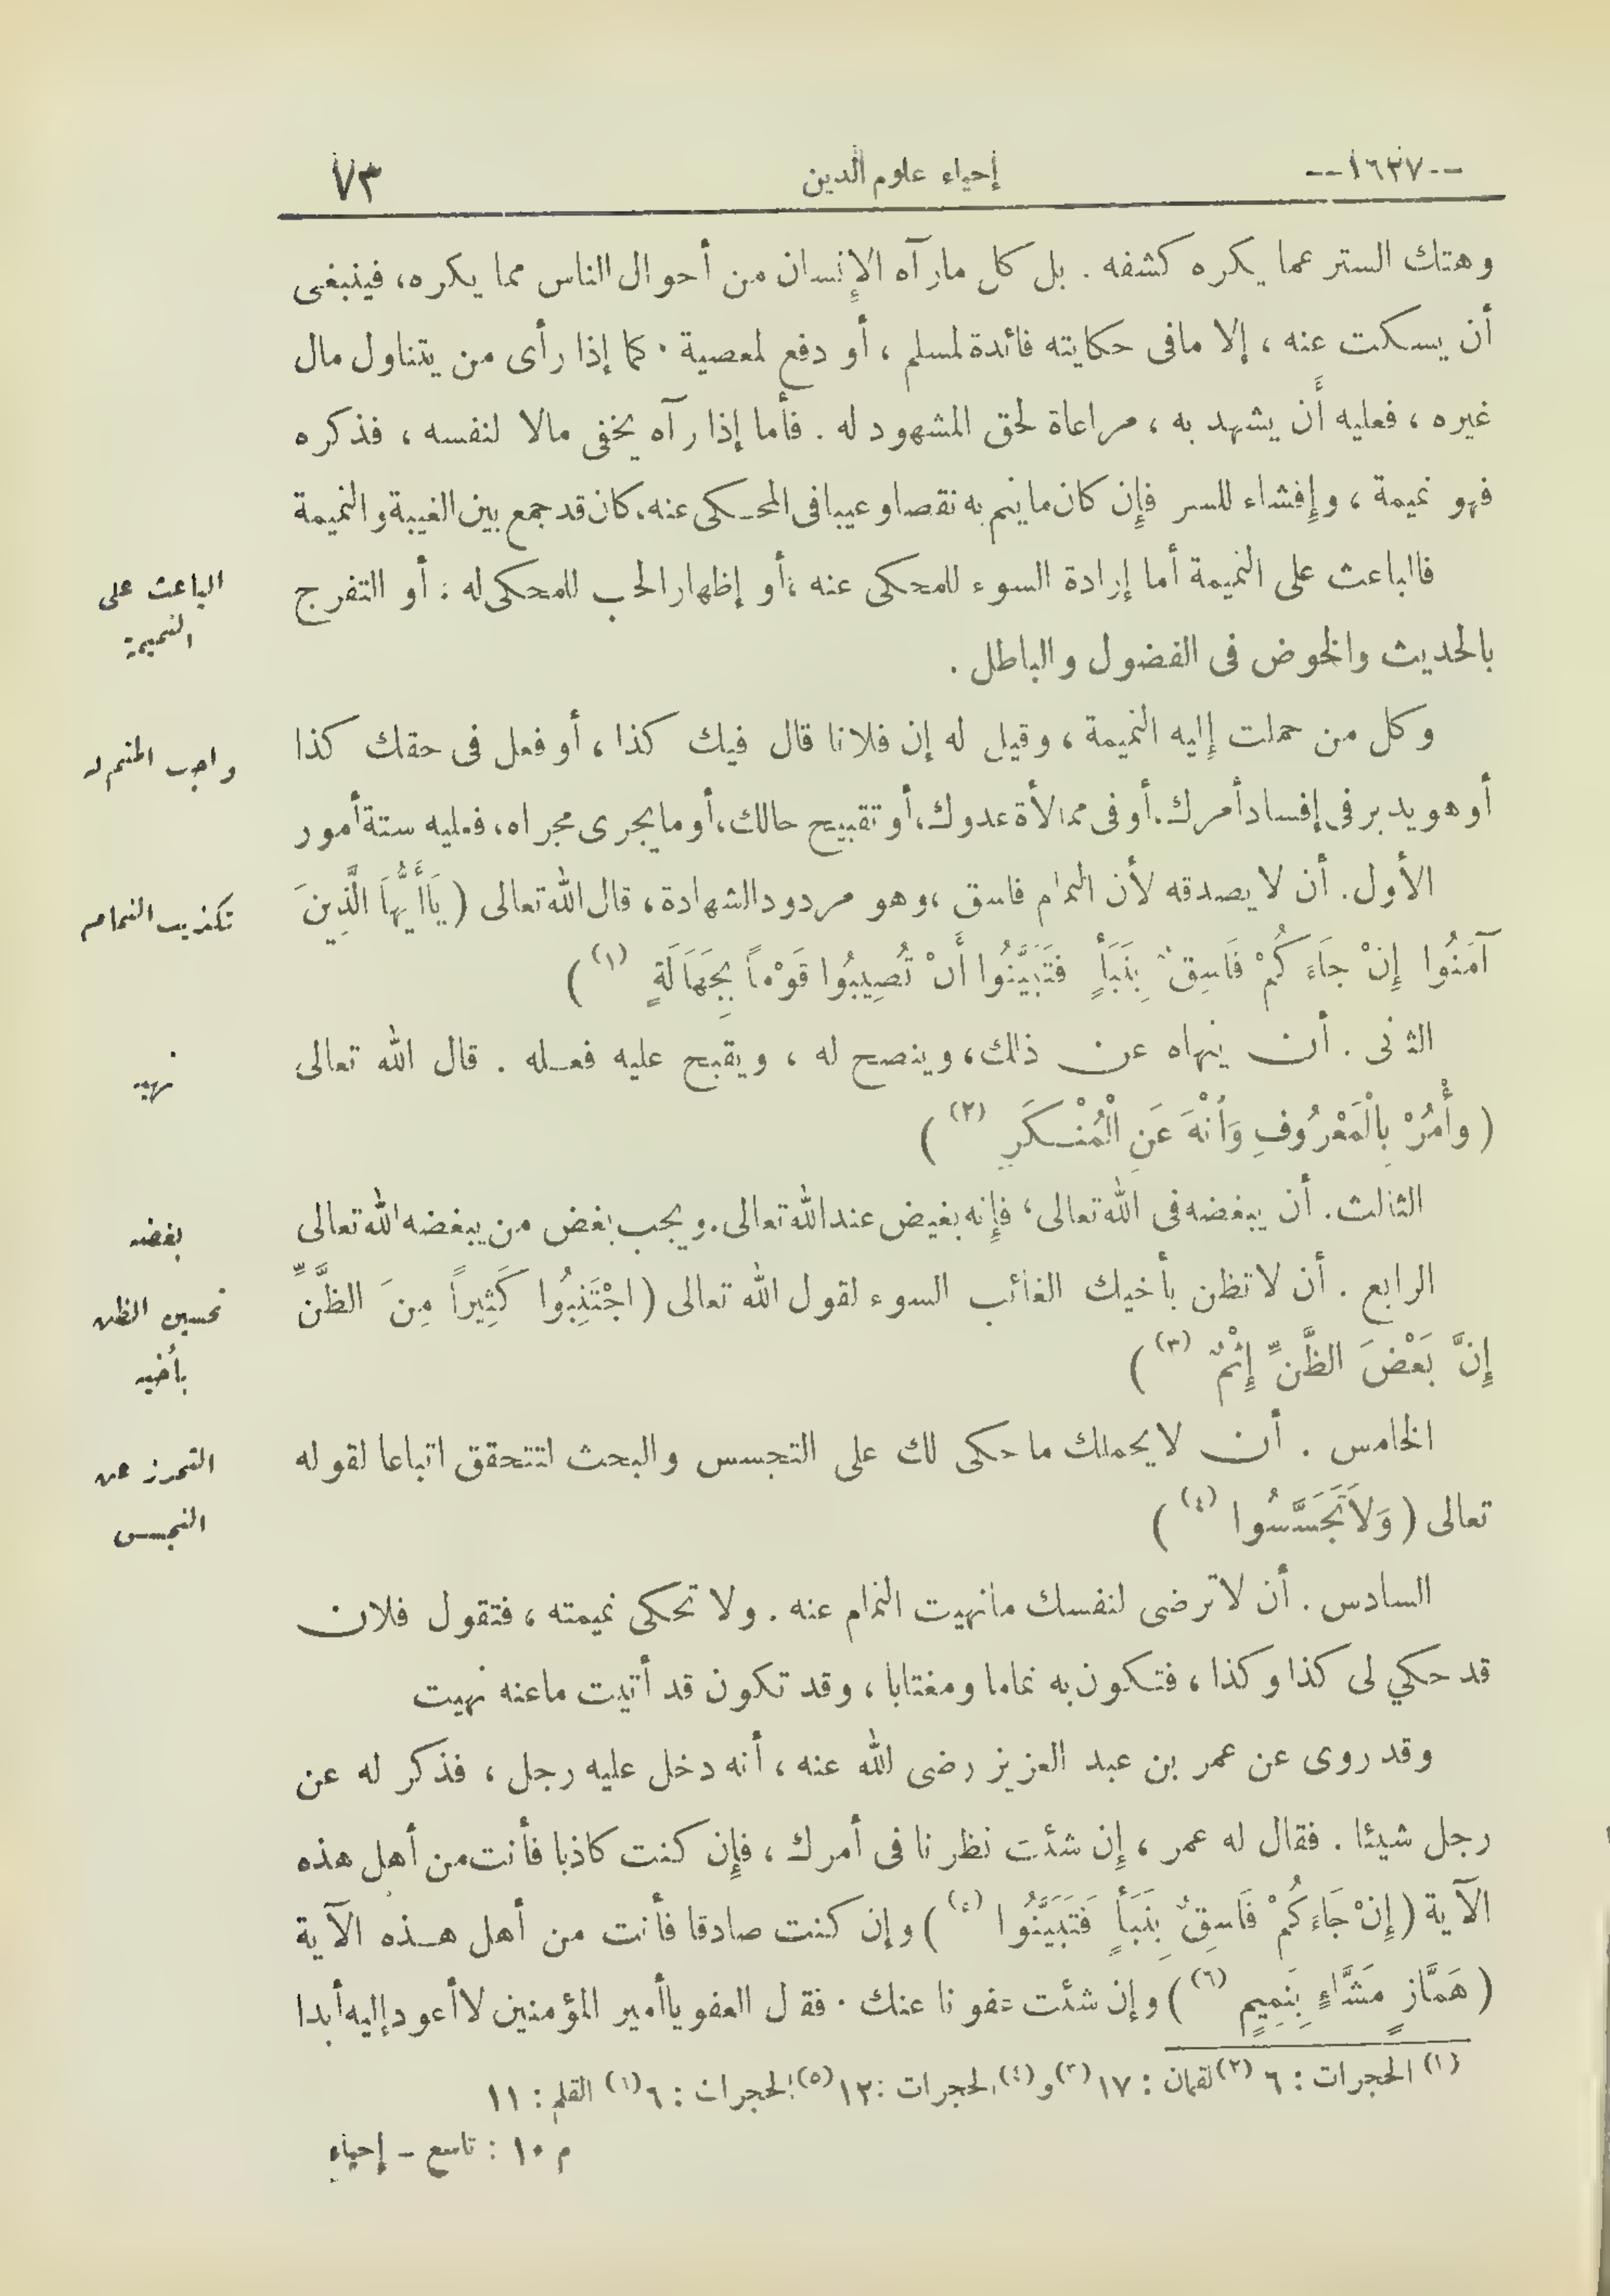 --١٦٢٧-- إحياء علوم الدين ٧٣
وهتك الستر عما يكره كشفه . بل كل مارآه الإنسان من أحوال الناس مما يكره، فينبغى
أن يسكت عنه ، إلا مافى حكايته فائدة لمسلم ، أو دفع لمعصية . كما إذا رأى من يتناول مال
غيره ، فعليه أن يشهد به ، مراعاة لحق المشهود له . فأما إذا رآه يخفى مالا لنفسه ، فذكره
فهو نميمة ، وإفشاء للسر فإن كان ماينم به نقصا وعيبا فى المحكى عنه، كان قد جمع بين الغيبة والنميمة
فالباعث على النميمة أما إرادة السوء للمحكى عنه ،أو إظهار الحب للمحكى له : أو التفرج
بالحديث والخوض فى الفضول والباطل .
وكل من حملت إليه النميمة ، وقيل له إن فلانا قال فيك كذا ، أو فعل فى حقك كذا
أو هو يدبر فى إفساد أمرك، أو فى ممالأة عدوك، أو تقبيح حالك، أو مايجرى مجراه، فعليه ستة أمور
الأول . أن لا يصدقه لأن النمام فاسق ،وهو مردود الشهادة ، قال الله تعالى ( يَاأَيُّهَا الَّذِينَ
آمَنُوا إِنْ جَاءَكُمْ فَاسِقٌ بِنَبَأٍ فَتَبَيَّنُوا أَنْ تُصِيبُوا قَوْماً بِجَهَالَةٍ (١) )
الثانى . أن ينهاه عن ذلك، وينصح له ، ويقبح عليه فعله . قال الله تعالى
( وأْمُرْ بِالْمَعْرُوفِ وَانْهَ عَنِ الْمُنْكَرِ (٢) )
الثالث . أن يبغضه فى الله تعالى، فإنه بغيض عند الله تعالى. ويجب بغض من يبغضه الله تعالى
الرابع . أن لا تظن بأخيك الغائب السوء لقول الله تعالى ( اجْتَنِبُوا كَثِيراً مِنَ الظَّنِّ
إِنَّ بَعْضَ الظَّنِّ إِثْمٌ (٣) )
الخامس . أن لا يحملك ماحكى لك على التجسس والبحث لتتحقق اتباعا لقوله
تعالى ( وَلَا تَجَسَّسُوا (٤) )
السادس . أن لا ترضى لنفسك مانهيت النمام عنه . ولا تحكى نميمته ، فتقول فلان
قد حكي لى كذا وكذا ، فتكون به نماما ومغتابا ، وقد تكون قد أتيت ماعنه نهيت
وقد روى عن عمر بن عبد العزيز رضى الله عنه ، أنه دخل عليه رجل ، فذكر له عن
رجل شيئا . فقال له عمر ، إن شئت نظرنا فى أمرك ، فإن كنت كاذبا فأنت من أهل هذه
الآية ( إِنْ جَاءَكُمْ فَاسِقٌ بِنَبَأٍ فَتَبَيَّنُوا (٥) ) وإن كنت صادقا فأنت من أهل هذه الآية
( هَمَّازٍ مَشَّاءٍ بِنَمِيمٍ (٦) ) وإن شئت عفونا عنك . فقال العفو ياأمير المؤمنين لا أعود إليه أبدا
(١) الحجرات : ٦ (٢) لقمان : ١٧ (٣) و (٤) الحجرات : ١٢ (٥) الحجرات : ٦ (٦) القلم : ١١
م ١٠ : تاسع – إحياء
الباعث على
النميمة
واجب المنم له
تكذيب النمام
نهيه
بغضه
تحسين الظن
بأخيه
التحرز عن
التجسس